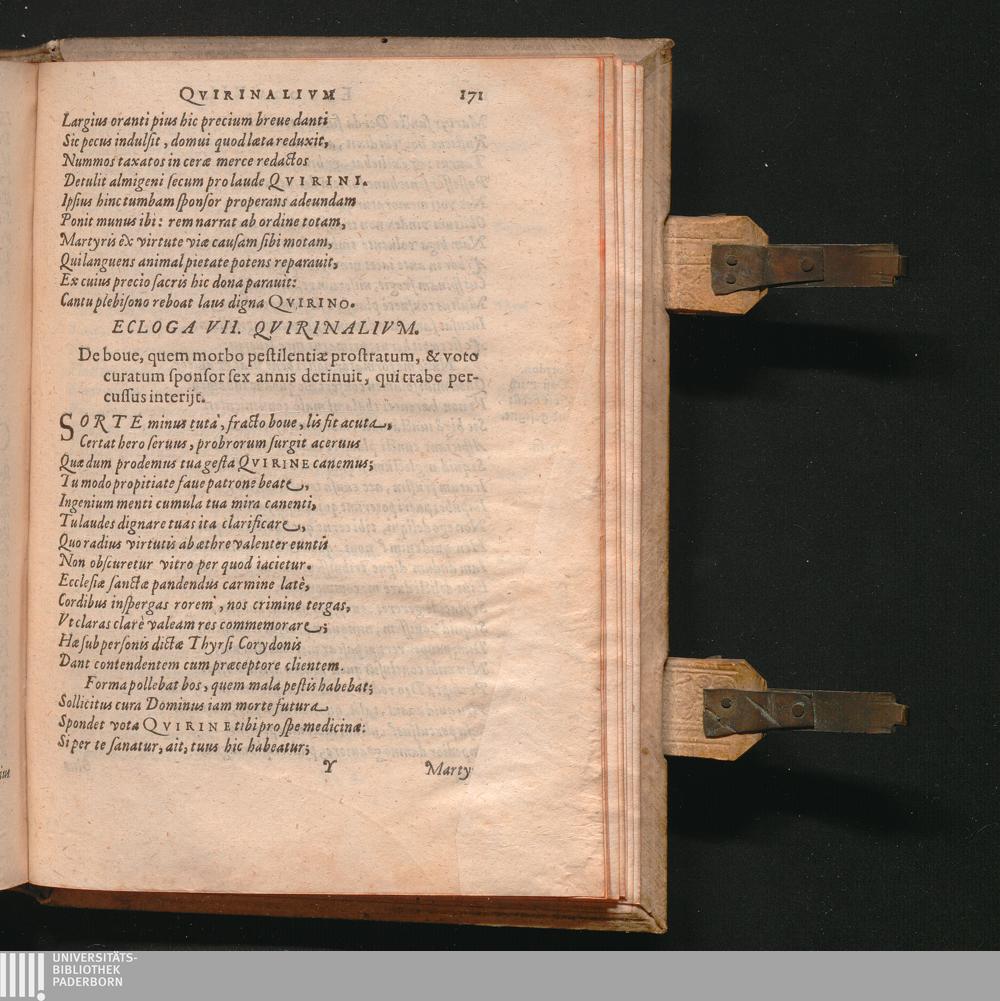 QVIRINALIVM 171
Largius oranti pius hic precium breue danti
Sic pecus indulsit, domui quod læta reduxit,
Nummos taxatos in ceræ merce redactos
Detulit almigeni secum pro laude QVIRINI.
Ipsius hinc tumbam sponsor properans adeundam
Ponit munus ibi: rem narrat ab ordine totam,
Martyris èx virtute viæ causam sibi motam,
Qui languens animal pietate potens reparauit,
Ex cuius precio sacris hic dona parauit:
Cantu plebisono reboat laus digna QVIRINO.
ECLOGA VII. QVIRINALIVM.
De boue, quem morbo pestilentiæ prostratum, & voto
curatum sponsor sex annis detinuit, qui trabe per-
cussus interijt.
SORTE minus tuta, fracto boue, lis fit acuta,
Certat hero seruus, probrorum surgit aceruus
Quæ dum prodemus tua gesta QVIRINE canemus;
Tu modo propitiate faue patrone beate,
Ingenium menti cumula tua mira canenti,
Tu laudes dignare tuas ita clarificare,
Quo radius virtutis ab æthre valenter euntis
Non obscuretur vitro per quod iacietur.
Ecclesiæ sanctæ pandendus carmine latè,
Cordibus inspergas rorem, nos crimine tergas,
Vt claras clarè valeam res commemorare;
Hæ sub personis dictæ Thyrsi Corydonis
Dant contendentem cum præceptore clientem.
Forma pollebat bos, quem mala pestis habebat;
Sollicitus cura Dominus iam morte futura
Spondet vota QVIRINE tibi pro spe medicinæ:
Si per te sanatur, ait, tuus hic habeatur;
Y Marty
UNIVERSITÄTS-
BIBLIOTHEK
PADERBORN